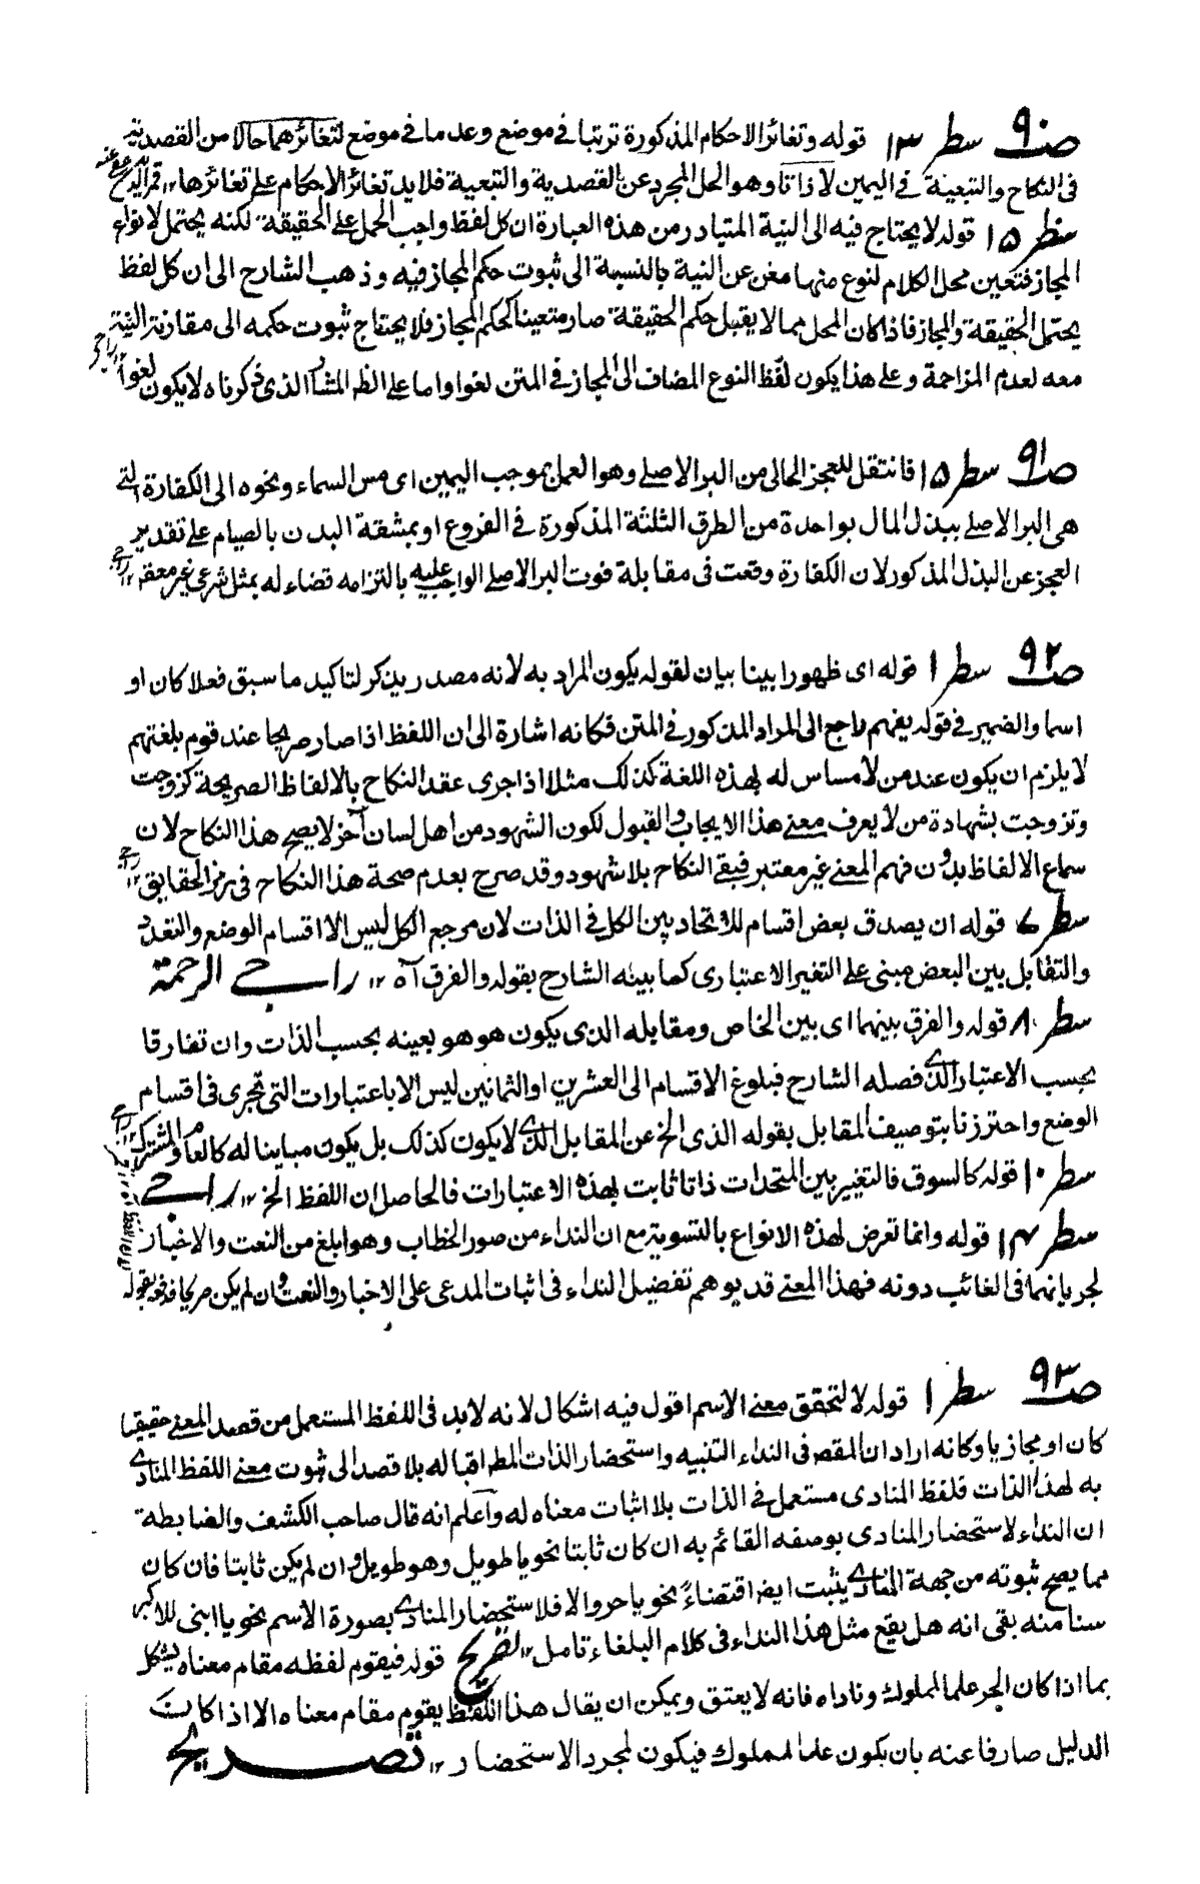 صـ٩٠ سطر ١٣ قوله وتغائر الاحكام المذكورة ترتبا في موضع وعدما في موضع لتغائرهما حالا من القصدية
في النكاح والتبعية في اليمين لا ذاتا وهو الحل المجرد عن القصدية والتبعية فلابد تغائر الاحكام على تغائرها ١٢ قمر الدين عفى عنه
سطر ١٥ قوله لا يحتاج فيه الى النية المتبادر من هذه العبارة ان كل لفظ واجب الحمل على الحقيقة لكنه يحتمل لانواع
المجاز فتعين محل الكلام لنوع منها مغن عن النية بالنسبة الى ثبوت حكم المجاز فيه وذهب الشارح الى ان كل لفظ
يحتمل الحقيقة والمجاز فاذا كان المحل مما لا يقبل حكم الحقيقة صار متعينا لحكم المجاز فلا يحتاج ثبوت حكمه الى مقارنة النية
معه لعدم المزاحمة وعلى هذا يكون لفظ النوع المضاف الى المجاز في المتن لغوا واما على الظہ المتبادر الذى ذكرناه لا يكون لغوا ١٢ راجى
صـ٩١ سطر ١٥ فانتقل للعجز الحالى من البر الاصلے وهو العمل بموجب اليمين اى مس السماء ونحوه الى الكفارة التے
هى البر الاصلے ببذل المال بواحدة من الطرق الثلثة المذكورة في الفروع او بمشقة البدن بالصيام على تقدير
العجز عن البذل المذكور لان الكفارة وقعت في مقابلة فوت البر الاصلے الواجب عليه بالتزامه قضاء له بمثل شرعى غير معقول ١٢ راجى
صـ٩٢ سطر ١ قوله اى ظهورا بينا بيان لقوله يكون المراد به لانه مصدر يذكر لتاكيد ما سبق فعلا كان او
اسما والضمير في قوله يفهم راجع الى المراد المذكور في المتن فكانه اشارة الى ان اللفظ اذا صار صريحا عند قوم بلغتهم
لا يلزم ان يكون عند من لا مساس له بهذه اللغة كذلك مثلا اذا جرى عقد النكاح بالالفاظ الصريحة كزوجت
وتزوجت بشهادة من لا يعرف معنے هذا الايجاب والقبول لكون الشهود من اهل لسان آخر لا يصح هذا النكاح لان
سماع الالفاظ بدون فهم المعنے غير معتبر فبقے النكاح بلا شهود وقد صرح بعدم صحة هذا النكاح فى رمز الحقايق ١٢ راجى
سطر ٤ قوله ان يصدق بعض اقسام للاتحاد بين الكل في الذات لان مرجع الكل ليس الا اقسام الوضع والتعدد
والتقابل بين البعض مبنى على التغير الاعتبارى كما بينه الشارح بقوله والفرق آه ١٢ راجى الرحمة
سطر ٨ قوله والفرق بينهما اى بين الخاص ومقابله الذى يكون هو هو بعينه بحسب الذات وان تفارقا
بحسب الاعتبار الذے فصله الشارح فبلوغ الاقسام الى العشرين او الثمانين ليس الا باعتبارات التى تجرى فى اقسام
الوضع واحترزنا بتوصيف المقابل بقوله الذى الخ عن المقابل الذے لا يكون كذلك بل يكون مباينا له كالعام والمشترك ١٢ راجى
سطر ١٠ قوله كالسوق فالتغير بين المتحدات ذاتا ثابت بهذه الاعتبارات فالحاصل ان اللفظ الخ ١٢ راجى
سطر ١٤ قوله وانما تعرض لهذه الانواع بالتسوية مع ان النداء من صور الخطاب وهو ابلغ من النعت والاخبار
لجريانهما فى الغائب دونه فهذا المعنے قد يوهم تفضيل النداء فى اثبات المدعى على الاخبار والنعت وان لم يكن صريحا فدفعه بقوله
صـ٩٣ سطر ١ قوله لا لتحقق معنے الاسم اقول فيه اشكال لانه لابد فى اللفظ المستعمل من قصد المعنے حقيقيا
كان او مجازيا وكانه اراد ان المقصہ فى النداء التنبيه واستحضار الذات المطہ اقباله بلا قصد الى ثبوت معنے اللفظ المنادے
به لهذا الذات فلفظ المنادى مستعمل فے الذات بلا اثبات معناه له واعلم انه قال صاحب الكشف والضابطة
ان النداء لاستحضار المنادى بوصفه القائم به ان كان ثابتا نحو يا طويل وهو طويل وان لم يكن ثابتا فان كان
مما يصح ثبوته من جهة المنادے يثبت ايضا اقتضاءً نحو يا حر والا فلاستحضار المنادے بصورة الاسم نحو يا ابنى للاكبر
سنا منه بقى انه هل يقع مثل هذا النداء فى كلام البلغاء تامل ١٢ تصريح قوله فيقوم لفظه مقام معناه يشكل
بما اذا كان الحر علما لمملوك وناداه فانه لا يعتق ويمكن ان يقال هذا اللفظ يقوم مقام معناه الا اذا كانت
الدليل صارفا عنه بان يكون علما لمملوك فيكون لمجرد الاستحضار ١٢ تصريح